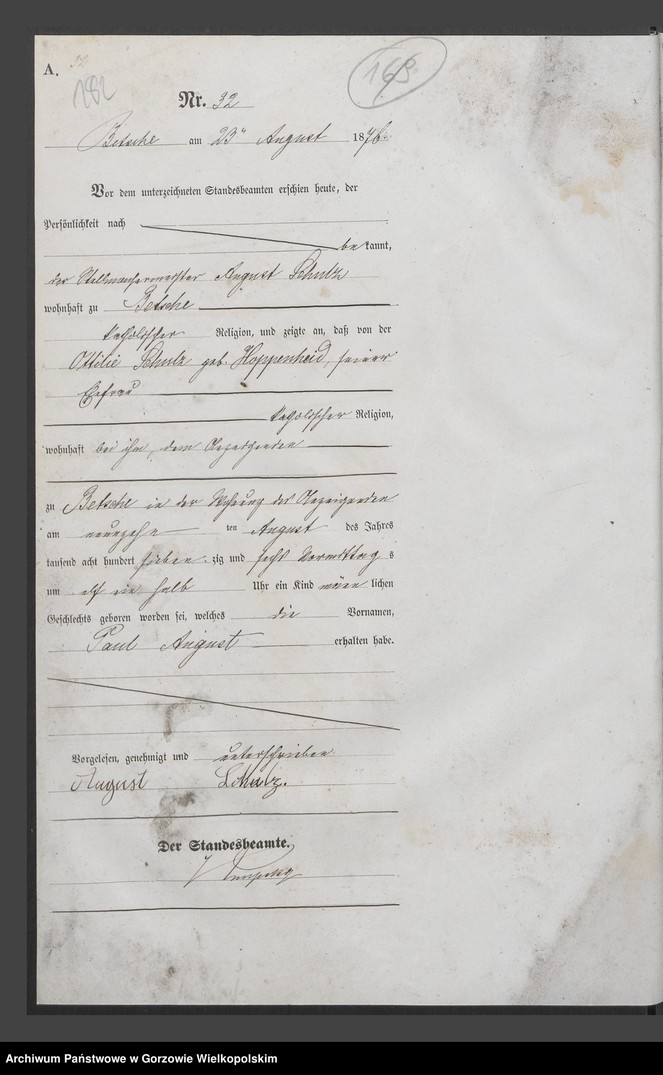 A.
32
182
163
Nr. 32
Betsche am 23ⁿ August 1876.
Vor dem unterzeichneten Standesbeamten erschien heute, der
Persönlichkeit nach
be kannt,
der Stellmachermeister August Schulz
wohnhaft zu Betsche
katholischer Religion, und zeigte an, daß von der
Ottilie Schulz geb. Hoppenheid, seiner
Ehefrau
katholischer Religion,
wohnhaft bei ihm, dem Anzeigenden
zu Betsche in der Wohnung des Anzeigenden
am neunzehn ten August des Jahres
tausend acht hundert sieben zig und sechs Vormittag s
um elf ein halb Uhr ein Kind männ lichen
Geschlechts geboren worden sei, welches die Vornamen,
Paul August erhalten habe.
Vorgelesen, genehmigt und unterschrieben
August Schulz.
Der Standesbeamte.
Archiwum Państwowe w Gorzowie Wielkopolskim